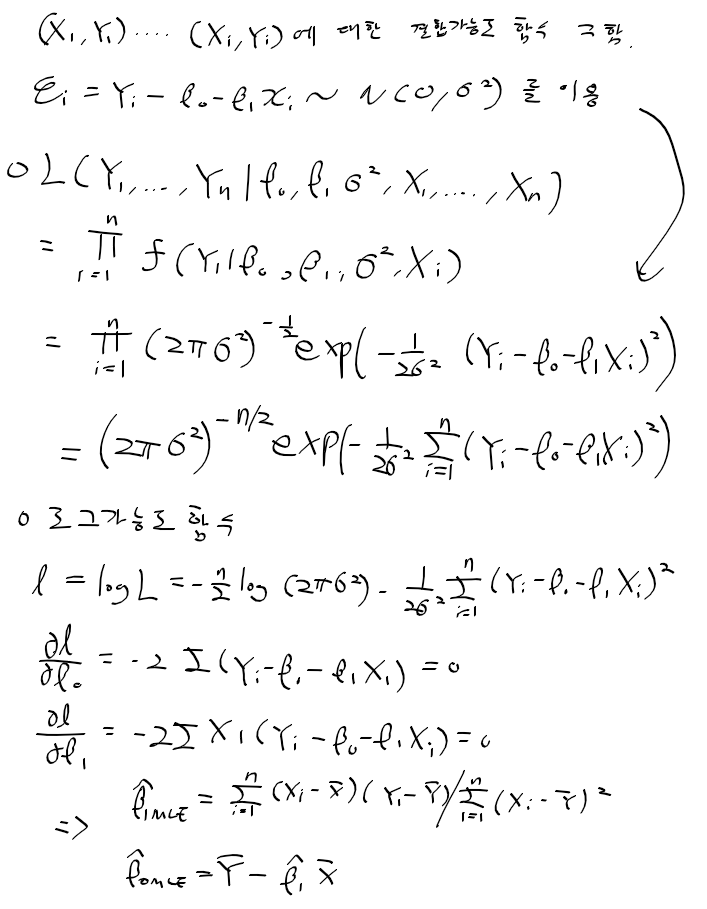 (X₁, Y₁) .... (Xᵢ, Yᵢ) 에 대한 결합가능도 함수 구함.
εᵢ = Yᵢ - β₀ - β₁xᵢ ~ N(0, σ²) 를 이용
o L(Y₁, ..., Yₙ | β₀, β₁ σ², X₁, ...., Xₙ)
= ∏ᵢ₌₁ⁿ f(Yᵢ | β₀, β₁, σ², Xᵢ)
= ∏ᵢ₌₁ⁿ (2πσ²)^(-1/2) exp(-1/2σ² (Yᵢ - β₀ - β₁Xᵢ)²)
= (2πσ²)^(-n/2) exp(-1/2σ² Σᵢ₌₁ⁿ (Yᵢ - β₀ - β₁Xᵢ)²)
o 로그가능도 함수
l = log L = -n/2 log (2πσ²) - 1/2σ² Σᵢ₌₁ⁿ (Yᵢ - β₀ - β₁Xᵢ)²
∂l/∂β₀ = -2 Σ(Yᵢ - β₀ - β₁Xᵢ) = 0
∂l/∂β₁ = -2Σ Xᵢ(Yᵢ - β₀ - β₁Xᵢ) = 0
=> β̂₁MLE = Σᵢ₌₁ⁿ (Xᵢ - X̄)(Yᵢ - Ȳ) / Σᵢ₌₁ⁿ (Xᵢ - Ȳ)²
β̂₀MLE = Ȳ - β̂₁X̄